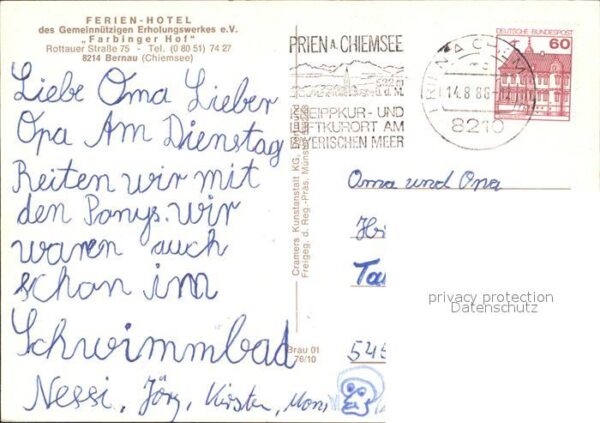 FERIEN-HOTEL
des Gemeinnützigen Erholungswerkes e.V.
"Farbinger Hof"
Rottauer Straße 75 - Tel. (0 80 51) 74 27
8214 Bernau (Chiemsee)
Liebe Oma Lieber
Opa Am Dienstag
Reiten wir mit
den Ponys. wir
waren auch
schon im
Schwimmbad
Nessi, Jörg, Kirsten, Moni
Cramers Kunstanstalt KG, Dortmund
Freigeg. d. Reg.-Präs. Münster
Brau 01
76/10
PRIEN A. CHIEMSEE
KNEIPPKUR- UND
LUFTKURORT AM
BAYERISCHEN MEER
PRIEN A CHIEM
14.8.86
8210
DEUTSCHE BUNDESPOST
60
Oma und Opa
545
privacy protection
Datenschutz